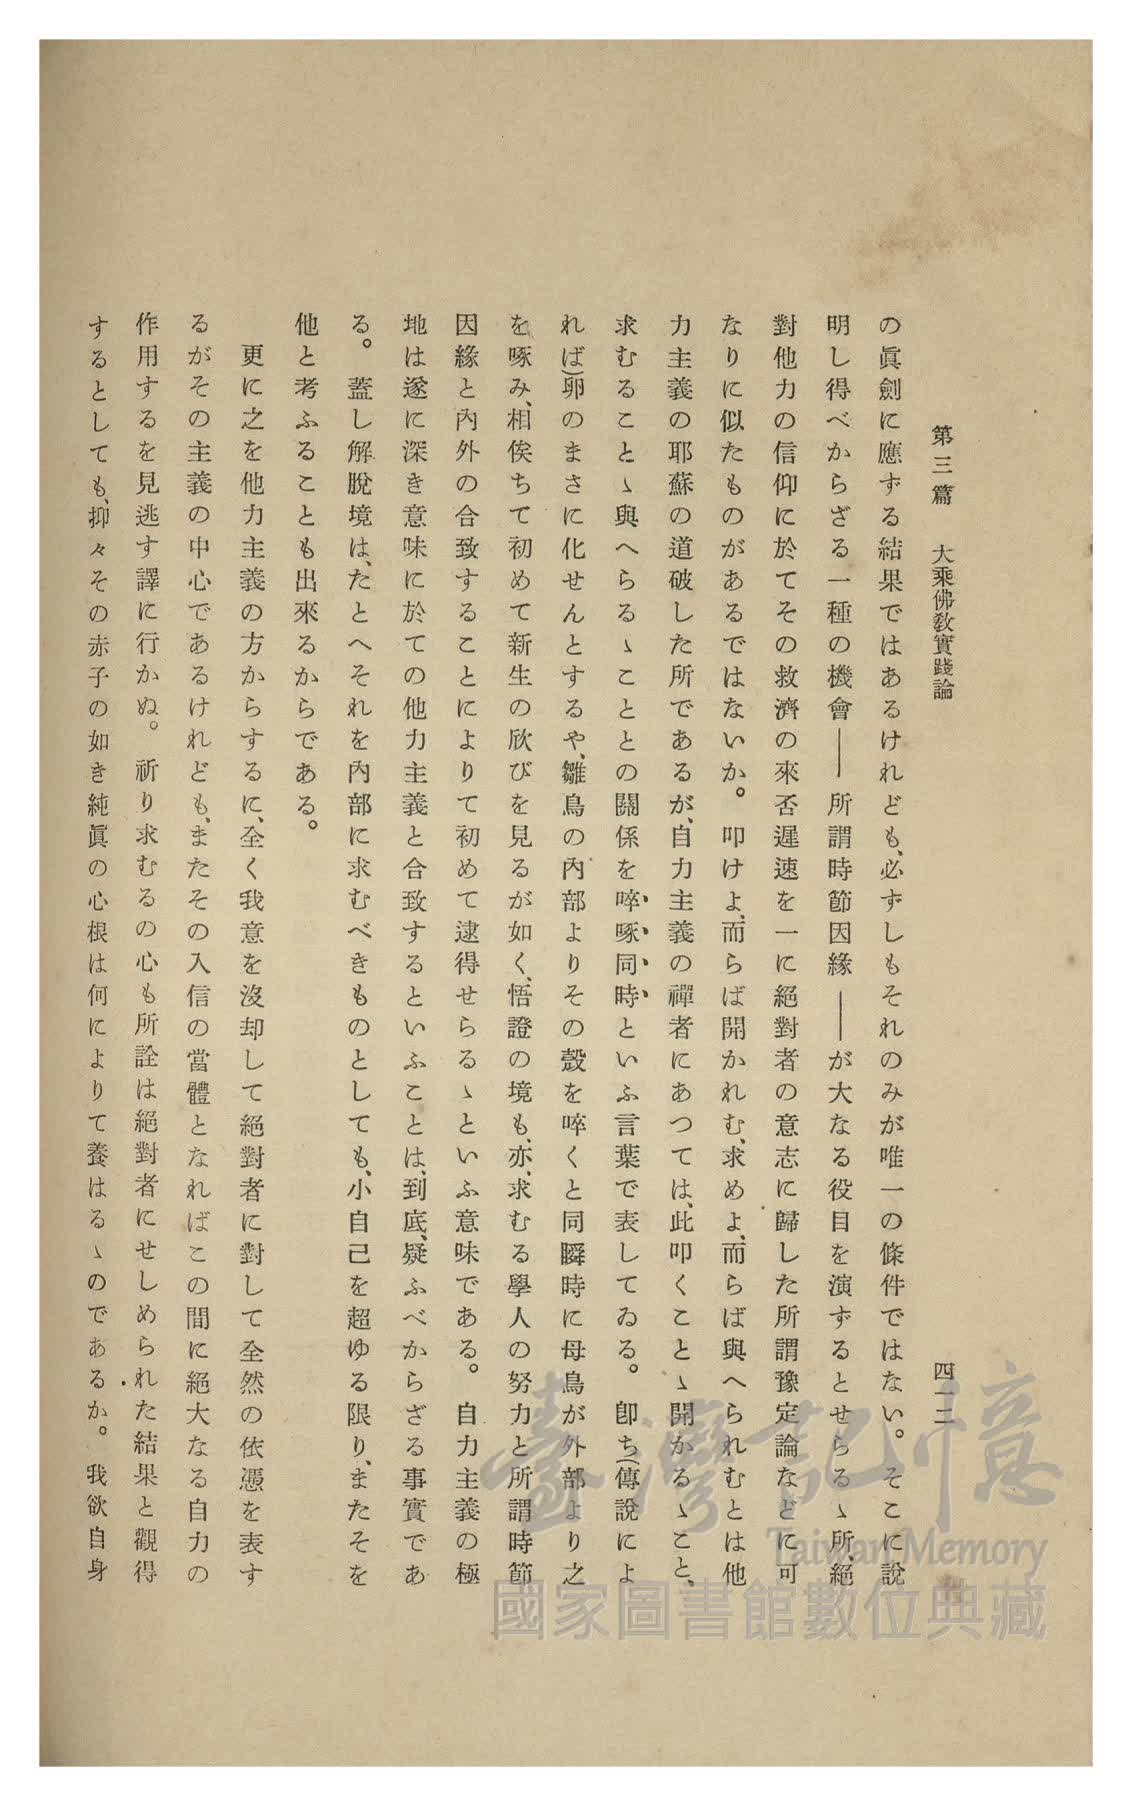 第三篇　大乘佛敎實踐論　四一二
の眞劍に應ずる結果ではあるけれども、必ずしもそれのみが唯一の條件ではない。そこに說
明し得べからざる一種の機會――所謂時節因緣――が大なる役目を演ずるとせらるゝ所、絕
對他力の信仰に於てその救濟の來否遲速を一に絕對者の意志に歸した所謂豫定論などに可
なりに似たものがあるではないか。叩けよ、而らば開かれむ、求めよ、而らば與へられむとは他
力主義の耶蘇の道破した所であるが、自力主義の禪者にあつては、此叩くことゝ開かるゝこと、
求むることゝ與へらるゝこととの關係を啐啄同時といふ言葉で表してゐる。卽ち(傳說によ
れば)卵のまさに化せんとするや、雛鳥の內部よりその殼を啐くと同瞬時に母鳥が外部より之
を啄み、相俟ちて初めて新生の欣びを見るが如く、悟證の境も、亦、求むる學人の努力と所謂時節
因緣と內外の合致することによりて初めて逮得せらるゝといふ意味である。自力主義の極
地は遂に深き意味に於ての他力主義と合致するといふことは、到底、疑ふべからざる事實であ
る。蓋し解脫境は、たとへそれを內部に求むべきものとしても、小自己を超ゆる限り、またそを
他と考ふることも出來るからである。
更に之を他力主義の方からするに、全く我意を沒却して絕對者に對して全然の依憑を表す
るがその主義の中心であるけれども、またその入信の當體となればこの間に絕大なる自力の
作用するを見逃す譯に行かぬ。祈り求むるの心も所詮は絕對者にせしめられた結果と觀得
するとしても、抑々その赤子の如き純眞の心根は何によりて養はるゝのであるか。我欲自身
臺灣記憶
Taiwan Memory
國家圖書館數位典藏